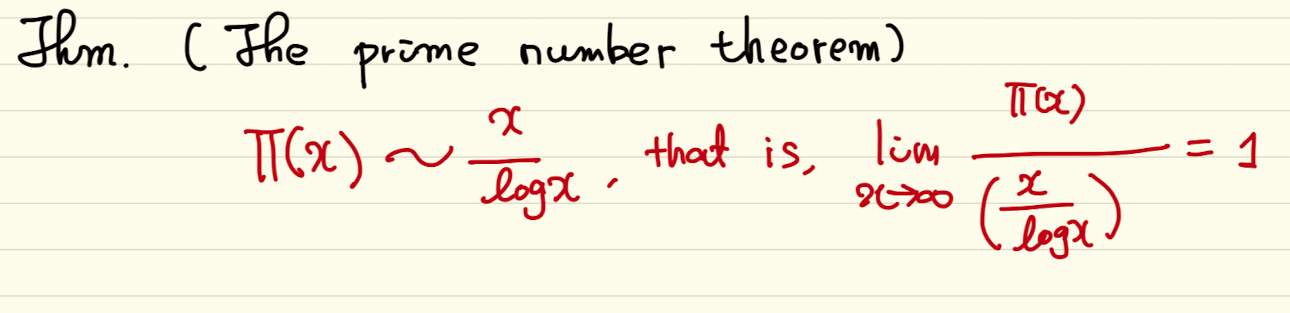 Thm. (The prime number theorem)
π(x) ~ x/log x, that is, lim x→∞ π(x)/(x/log x) = 1